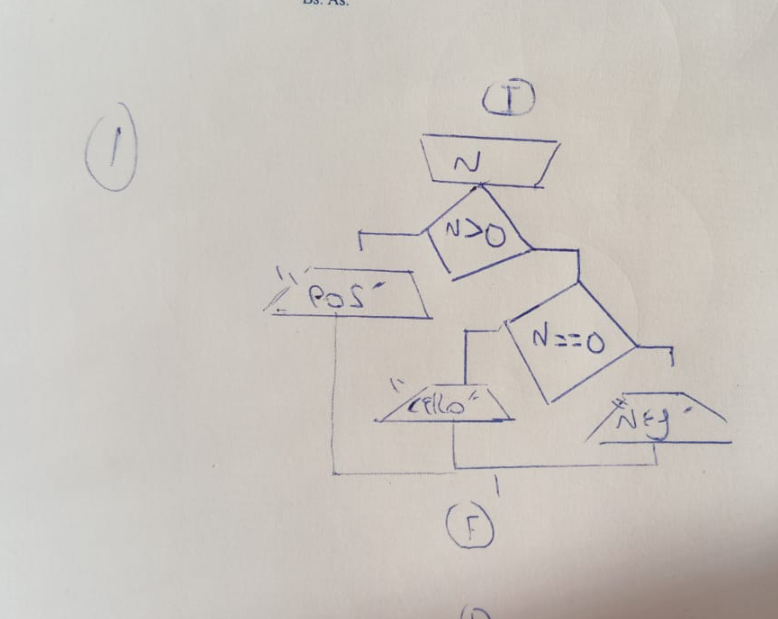 Bs. As.
I
1
N
N>0
"POS"
N==0
"CERO"
"NEG"
F